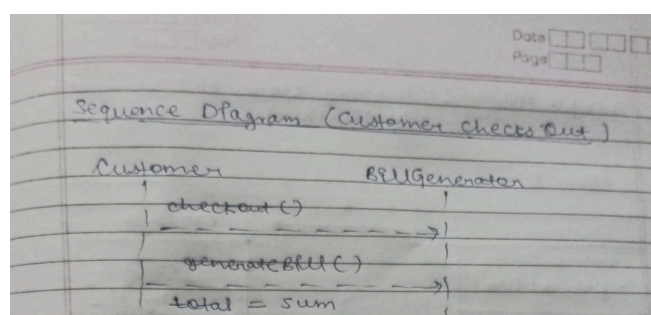 Date
Page
Sequence Diagram (Customer checks out)
Customer BillGenerator
checkout()
generateBill()
total = sum